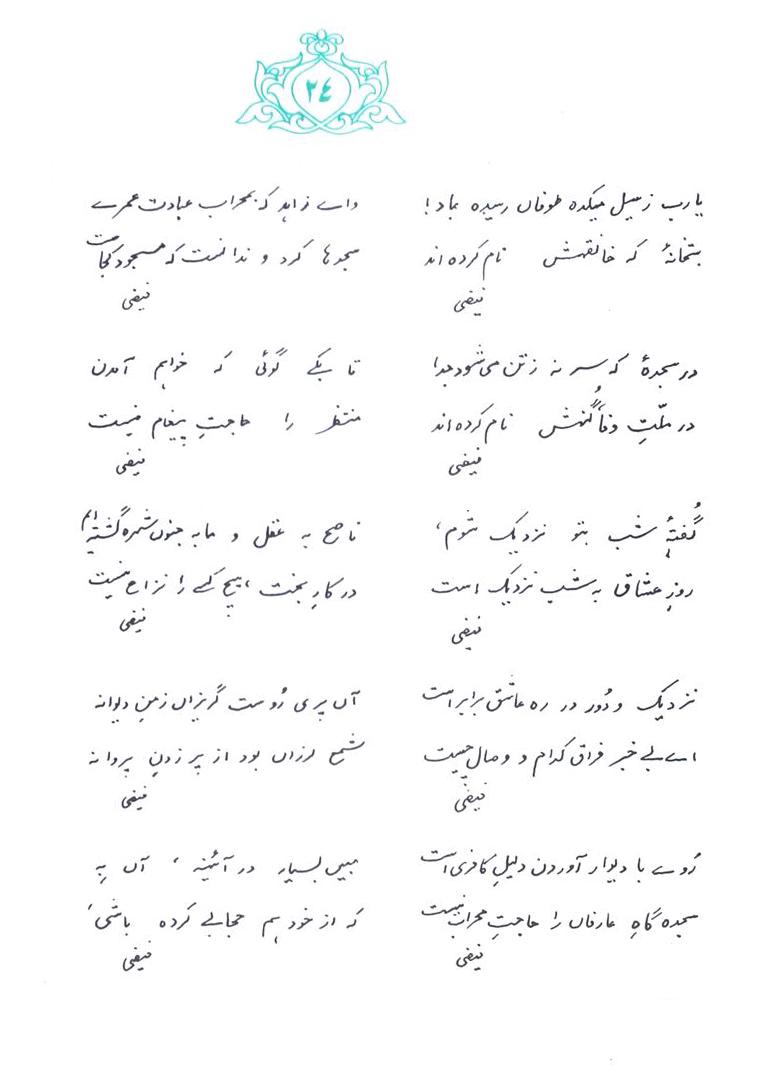 ۲۴
یارب ز سیل میکده طوفاں رسیدہ باد!
بتخانۂ کہ خانقہش نام کردہ اند
فیضی
واے زاہد کہ بمحراب عبادت عمرے
سجدہا کرد و ندانست کہ مسجود کجاست
فیضی
در سجدۂ کہ سر نہ ز تن می شود جدا
در ملّتِ وفا گُنہش نام کردہ اند
فیضی
تا بکے گوئی کہ خواہم آمدن
منتظر را حاجتِ پیغام نیست
فیضی
گُفتۂٖ شب بتو نزدیک شوم،
روزِ عشاق بہ شب نزدیک است
فیضی
ناصح بہ عقل و ما بہ جنوں شہرہ گشتہ ایم
در کارِ بخت، ہیچ کسے را نزاع نیست
فیضی
نزدیک و دُور در رہ عاشق برابر است
اے بے خبر فراق کدام و وصال چیست
فیضی
آں پری رُوست گریزاں ز منِ دیوانہ
شمع لرزاں بود از پر زدنِ پروانہ
فیضی
رُوے با دیوار آوردن دلیلِ کافری است
سجدہ گاہِ عارفاں را حاجتِ محراب نیست
فیضی
مبیں بسیار در آئینہ، آں بِہ
کہ از خود ہم حجابے کردہ باشی
فیضی